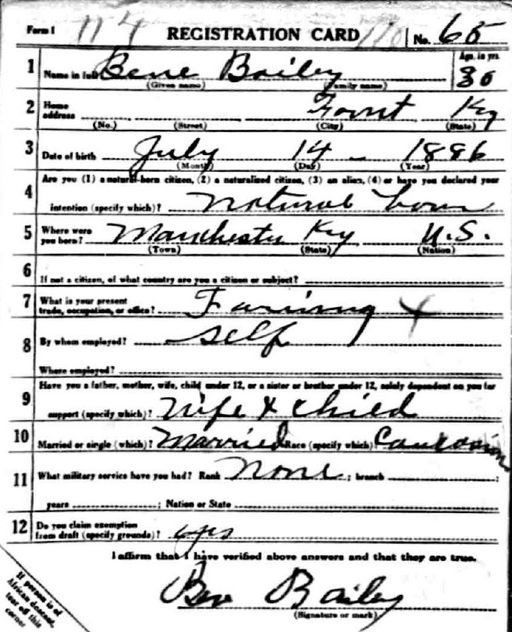 Form 1 114 REGISTRATION CARD No. 65
1 Name in full Bene Bailey Age, in yrs. 30
(Given name) (Family name)
2 Home address Ky
(No.) (Street) (City) (State)
3 Date of birth July 14 - 1886
(Month) (Day) (Year)
4 Are you (1) a natural-born citizen, (2) a naturalized citizen, (3) an alien, (4) or have you declared your
intention (specify which)? natural born
5 Where were you born? Manchester Ky U.S.
(Town) (State) (Nation)
6 If not a citizen, of what country are you a citizen or subject?
7 What is your present trade, occupation, or office? Farming X
8 By whom employed? self
Where employed?
9 Have you a father, mother, wife, child under 12, or a sister or brother under 12, solely dependent on you for
support (specify which)? Wife & child
10 Married or single (which)? Married Race (specify which)? Caucasian
11 What military service have you had? Rank None ; branch ;
years ; Nation or State
12 Do you claim exemption from draft (specify grounds)? yes
I affirm that I have verified above answers and that they are true.
Ben Bailey
(Signature or mark)
If person is of
African descent,
tear off this
corner